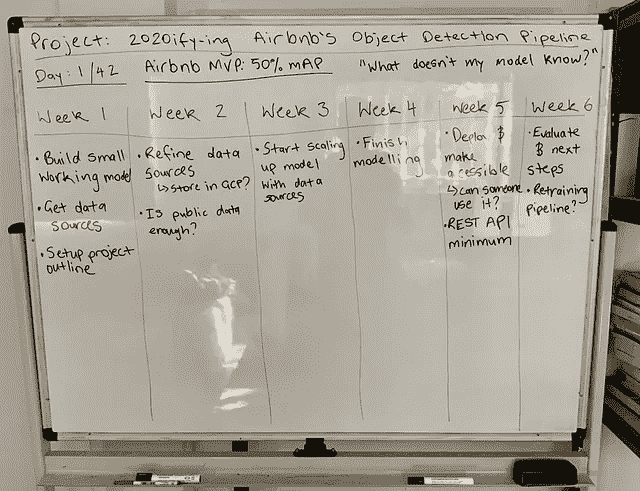 Project: 2020ify-ing Airbnb's Object Detection Pipeline
Day: 1/42
Airbnb MVP: 50% mAP
"What doesn't my model know?"
Week 1
• Build small
working model
• Get data
sources
• Setup project
outline
Week 2
• Refine data
sources
↳ store in GCP?
• Is public data
enough?
Week 3
• Start scaling
up model
with data
sources
Week 4
• Finish
modelling
Week 5
• Deploy &
make
acessible
↳ can someone
use it?
• REST API
minimum
Week 6
• Evaluate
& next
steps
• Retraining
Pipeline?